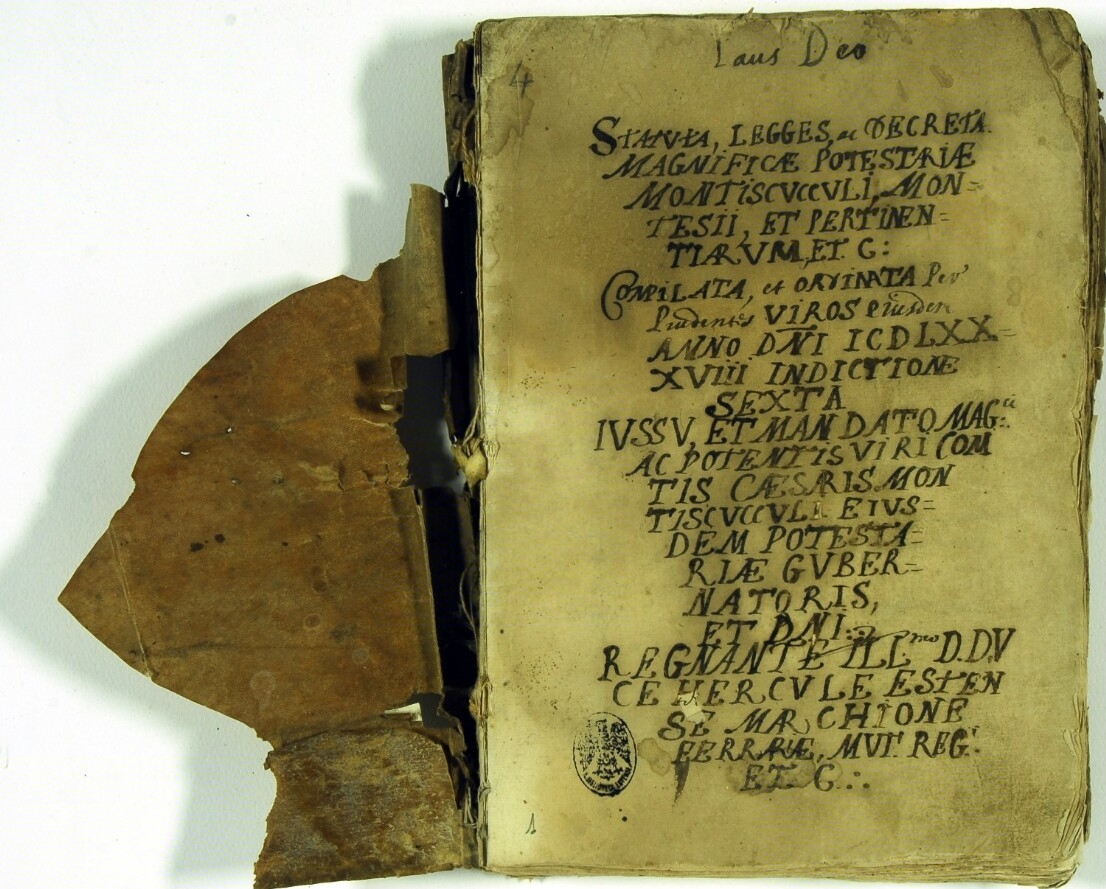 Laus Deo
4
STATUTA, LEGGES, ac DECRETA
MAGNIFICÆ POTESTARIÆ
MONTISCVCCVLI, MON=
TESII, ET PERTINEN=
TIARVM, ET. G:
COMPILATA, et ORDINATA Per
Prudentes VIROS eiusdem
ANNO DNI ICDLXX=
XVIII INDICTIONE
SEXTA
IVSSV, ET MANDATO MAG:ci
AC POTENTIS VIRI COM
TIS CÆSARIS MON
TISCVCCVLI EIVS=
DEM POTESTA=
RIÆ GVBER=
NATORIS,
ET DNI:
REGNANTE ILLmo D.DV
CE HERCVLE ESTEN
SE MARCHIONE
FERRARIÆ, MVT. REG:
ET G.:
1